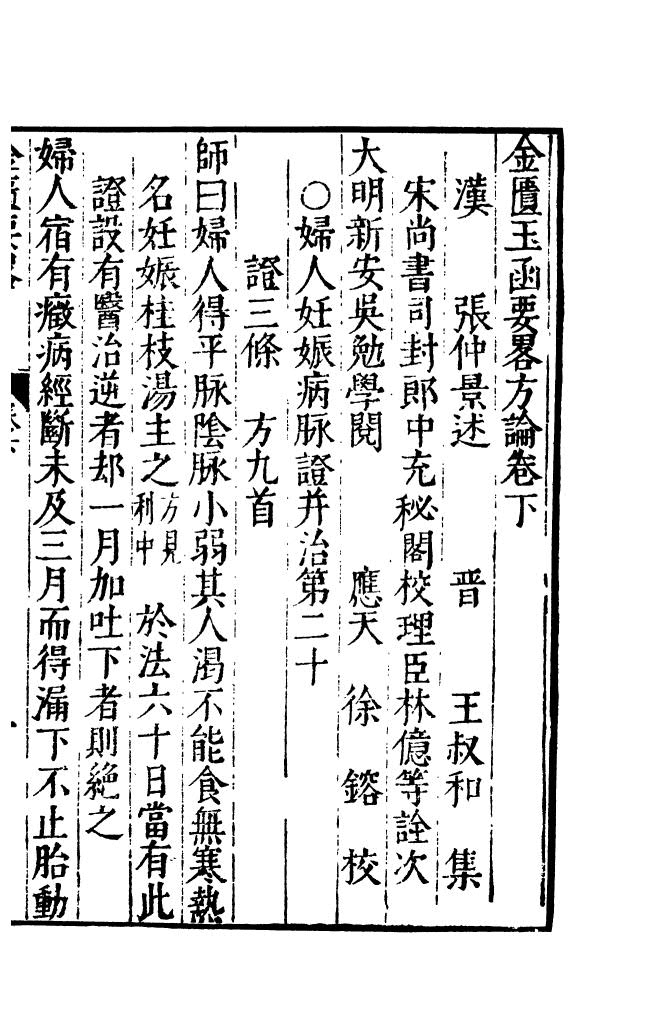 金匱玉函要畧方論卷下
漢 張仲景述 晋 王叔和 集
宋尚書司封郎中充秘閣校理臣林億等詮次
大明新安吳勉學閱 應天 徐 鎔 校
○婦人妊娠病脉證并治第二十
證三條 方九首
師曰婦人得平脉陰脉小弱其人渴不能食無寒熱
名妊娠桂枝湯主之方見利中 於法六十日當有此
證設有醫治逆者却一月加吐下者則絶之
婦人宿有癥病經斷未及三月而得漏下不止胎動